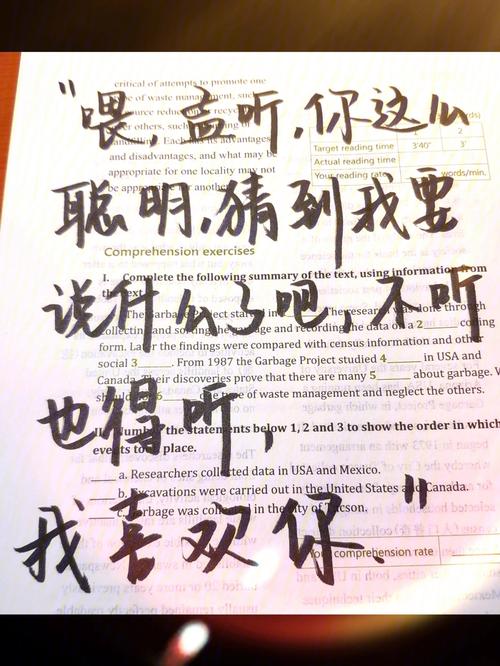 “喂,孟听,你这么
聪明,猜到我要
说什么了吧,不听
也得听,
我喜欢你.”
critical of attempts to promote one
of waste management, such
and disadvantages, and what may be
appropriate for one locality may not
Target reading time 3'40" 3'
Actual reading time
Your reading rate words/min.
Comprehension exercises
I. Complete the following summary of the text, using information from
The Garbage Project
form. Later the findings were compared with census information and other
social 3______. From 1987 the Garbage Project studied 4______ in USA and
Canada. Their discoveries prove that there are many 5______ about garbage.
6______ type of waste management and neglect the others.
II. Number the statements below 1, 2 and 3 to show the order in which
events place.
____ a. Researchers collected data in USA and Mexico.
____ b. Excavations were carried out in the United States and Canada.
____ c. Garbage was collected in the city of Tucson.
Your comprehension rate